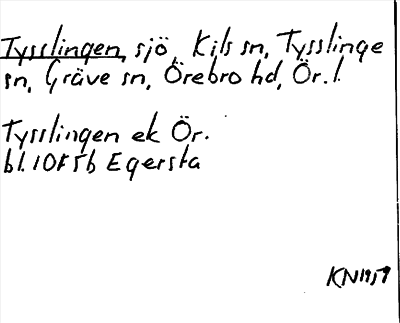 Tysslingen, sjö, Kils sn, Tysslinge
sn, Gräve sn, Örebro hd, Ör. l.
Tysslingen ek Ör.
bl. 10F5b Egersta
KN1959